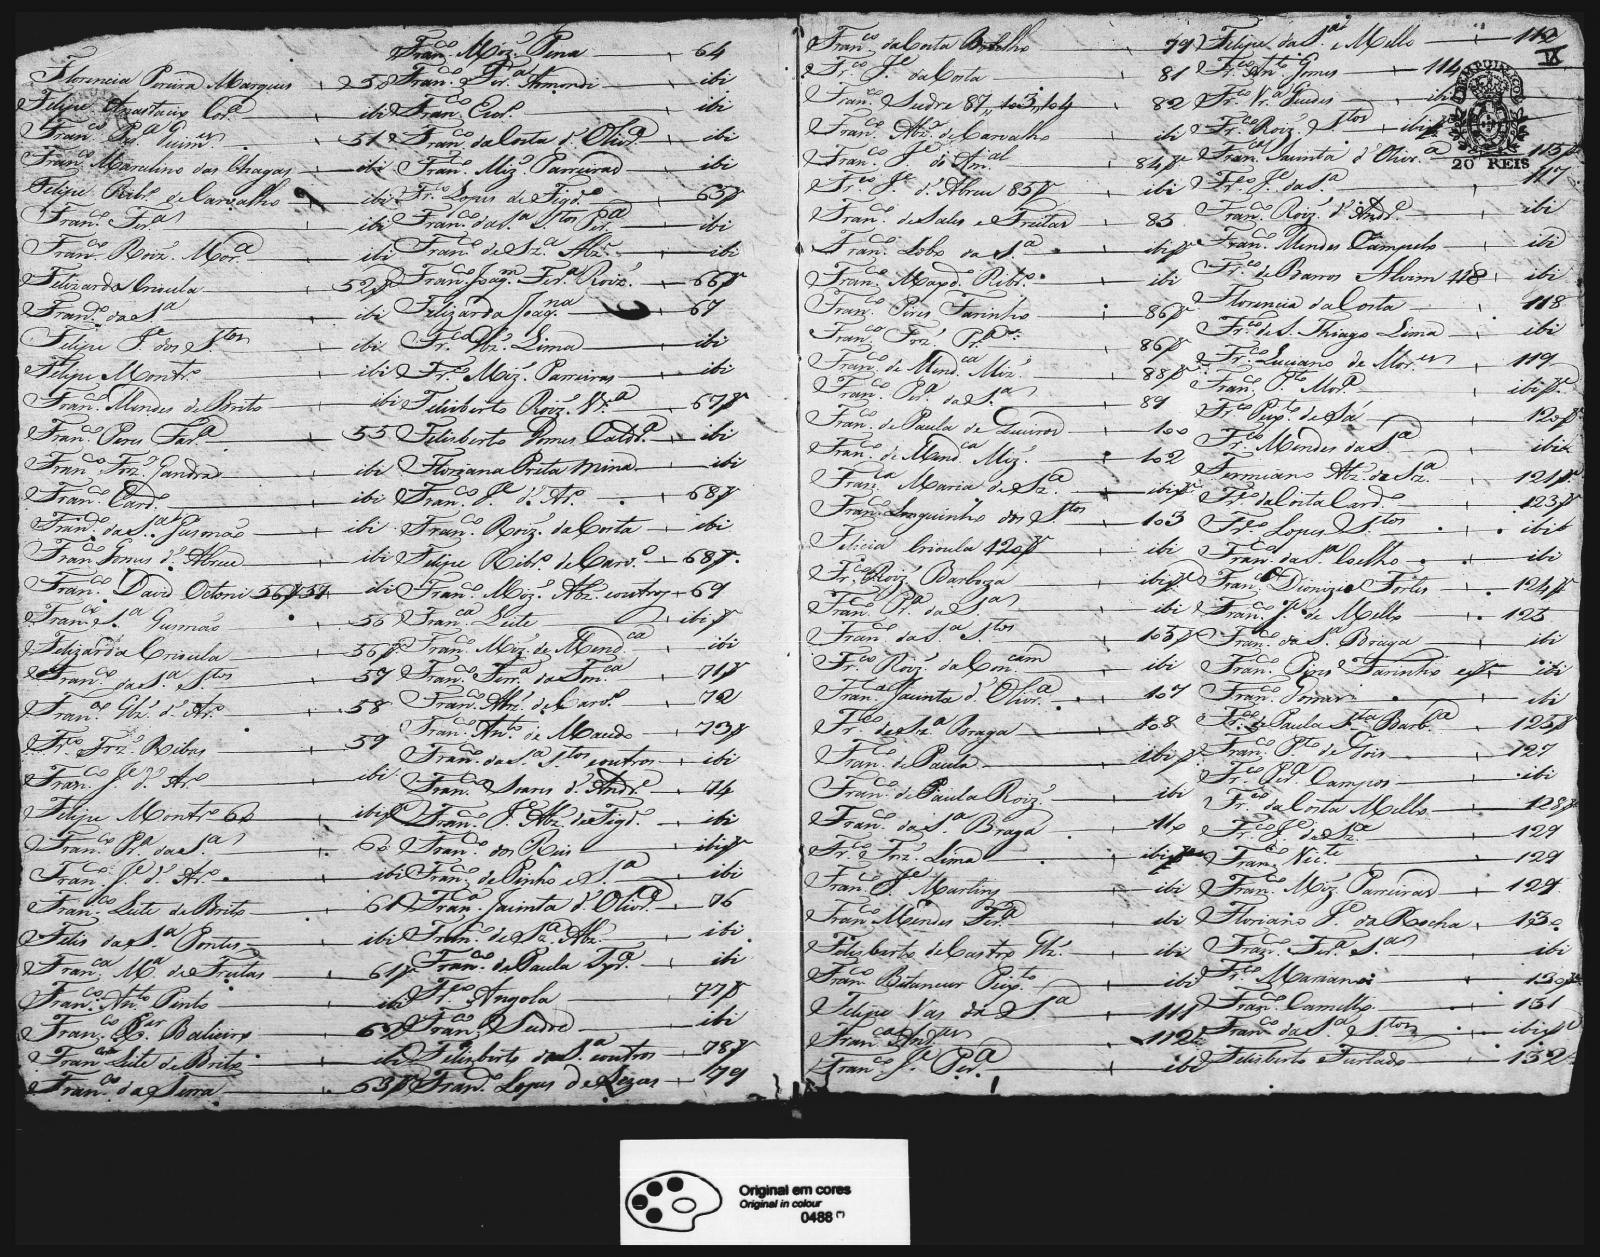 Florencia Pereira Marques 50
Felipe Anastacio Cor.ª ibi
Fran.co Per.ª Guim.es 51
Fran.co Marculino das Chagas ibi
Felipe Ribr.º de Carvalho ibi
Fran.co Fer.ª ibi
Fran.co Roiz' Mor.ª ibi
Felizarda Crioula 52
Fran.co da S.ª ibi
Felipe J.e dos S.tos ibi
Felipe Montr.º ibi
Fran.co Mendes de Brito ibi
Fran.co Peres Far.ª 55
Fran.co Frz' Gandra ibi
Fran.co Card.º ibi
Fran.co da S.ª Gusmão ibi
Fran.co Gomes d'Abreu ibi
Fran.co David Octoni ibi
Fran.co S.ª Gusmão 56
Felizarda Crioula 56
Fran.co da S.ª S.tos 57
Fran.co Glz' d'Ar.º 58
Fr.co Frz' Ribas 59
Fran.co J.e d'Ar.º ibi
Felipe Montr.º 60 ibi
Fran.co P.ª da S.ª 60
Fran.co J.e d'Ar.º ibi
Fran.co Leite de Brito 61
Felis da S.ª Pontes ibi
Fran.ca M.ª de Freitas 61
Fran.co Ant.º Pinto ibi
Fran.co X.er Balieiro 62
Fran.co Leite de Brito ibi
Fran.co da Serra 63
Fran.co Miz' Pena 64
Fran.co Fer.ª Armondi ibi
Fran.co ibi
Fran.co da Costa d'Olivr.ª ibi
Fran.co Miz' Parreiras ibi
Fr.co Lopes de Figd.º 65
Fran.co da S.ª S.tos Per.ª ibi
Fran.co de Sz.ª Abz' ibi
Fran.co Joaq.m Fer.ª Roiz' 66
Felizarda Joaq.na 67
Fr.co Abz' Lima ibi
Fr.co Miz' Parreiras ibi
Felisberto Roiz' Vr.ª 67
Felisberto Gomes Caldr.ª ibi
Floriana Preta Mina ibi
Fran.co J.e d'Ar.º 68
Fran.co Roiz' da Costa ibi
Felipe Ribr.º de Carv.º 68
Fran.co Miz' Abz' e outros 69
Fran.ca Leite ibi
Fran.co Miz' de Mend.ca ibi
Fran.co Ferr.ª da Fon.ca 71
Fran.co Abz' de Carv.º 72
Fran.co Ant.º de Macedo 73
Fran.co da S.ª S.tos e outros ibi
Fran.co Soares d'Andr.e 74
Fran.co J.e Abz' de Figd.º ibi
Fran.co dos Reis ibi
Fran.co de Pinho e S.ª ibi
Fran.ca Jacinta d'Olivr.ª 76
Fran.co de Sz.ª Abz' ibi
Fran.co de Paula Tx.ª ibi
Fr.co Angola 77
Fran.co Sudré ibi
Felisberto da S.ª e outros 78
Fran.co Lopes de Sezas 79
Fran.co da Costa Botelho 79
Fr.co J.e da Costa 81
Fran.co Sudre 87, 103, 104 82
Fran.co Abz' de Carvalho ibi
Fran.co J.e do Am.al 84
Fr.co J.e d'Abreu 85 ibi
Fran.co de Sales e Freitas 85
Fran.co Lobo da S.ª ibi
Fran.co Mayd. Ribr.º ibi
Fran.co Pires Farinho 86
Fran.co Frz' 86
Fran.co de Mend.ca Miz' 88
Fran.co Per.ª da S.ª 89
Fran.co de Paula de Queiros 100
Fran.co de Mend.ca Miz' 102
Fran.ca Maria de Sz.ª ibi
Fran.co Longuinho dos S.tos 103
Felicia Crioula 120 ibi
Fr.co Roiz' Barboza ibi
Fran.co P.ª da S.ª ibi
Fran.co da S.ª S.tos 105
Fr.co Roiz' da Con.cam ibi
Fran.ca Jacinta d'Olivr.ª 107
Fr.co de Sz.ª Braga 108
Fran.co de Paula ibi
Fran.co de Paula Roiz' ibi
Fran.co da S.ª Braga 110
Fr.co Frz' Lima ibi
Fran.co J.e Martins ibi
Fran.co Mendes Fer.ª ibi
Felisberto de Castro Glz' ibi
Fran.co Bitancur Peix.to ibi
Felipe Vas da S.ª 111
Fran.ca 112
Fran.co J.e Per.ª ibi
Felipe da S.ª e Mello 113
Fr.co Ant.º Gomes 114
Fr.co Vr.ª Guedes ibi
Fr.co Roiz' S.tos ibi
Fran.ca Jacinta d'Olivr.ª 115
Fr.co J.e da S.ª 117
Fran.co Roiz' d'Andr.e ibi
Fran.co Mendes Campelo ibi
Fr.co de Barros Alvim 118 ibi
Florencia da Costa 118
Fr.co de S. Thiago Lima ibi
Fr.co Luciano de Mor.es 119
Fran.co P.to Mor.ª ibi
Fr.co Peix.to de Sá 120
Fr.co Mendes da S.ª ibi
Fermiano Abz' de Sz.ª 121
Fr.co da Costa Card.º 123
Fr.co Lopes S.tos ibi
Fran.co da S.ª Coelho ibi
Fran.co Dionizio Fortes 124
Fran.co J.e de Mello 125
Fran.co da S.ª Braga ibi
Fran.co Pires Farinho ibi
Fran.co Tomás ibi
Fr.co de Paula S.ta Barb.ª 125
Fran.co P.to de Gois 127
Fr.co Per.ª Campos ibi
Fr.co da Costa Mello 128
Fr.co J.e de Sz.ª 129
Fran.co Nic.te 129
Fran.co Miz' Parreiras 129
Floriano J.e da Rocha 130
Fran.co Fer.ª S.ª ibi
Fr.co Mariano 130
Fran.co Camello 131
Fran.co da S.ª S.tos ibi
Felisberto Furtado 132
20 REIS
Original em cores
Original in colour
0488